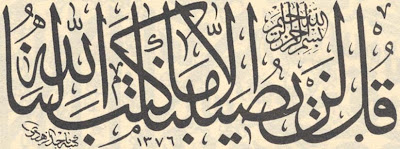 بسم الله الرحمن الرحيم
قُل لَن يُصِيبَنَا إِلَّا مَا كَتَبَ اللّٰهُ لَنَا
١٣٧٦